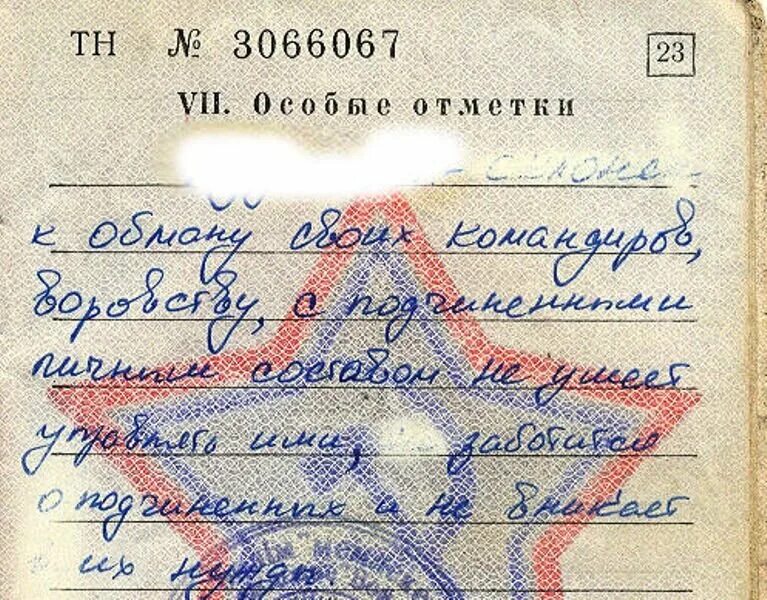 ТН № 3066067 23
VII. Особые отметки
к обману своих командиров,
воровству, с подчиненными
личным составом не умеет
управлять ими, заботится
о подчиненных и не вникает
в их нужды.